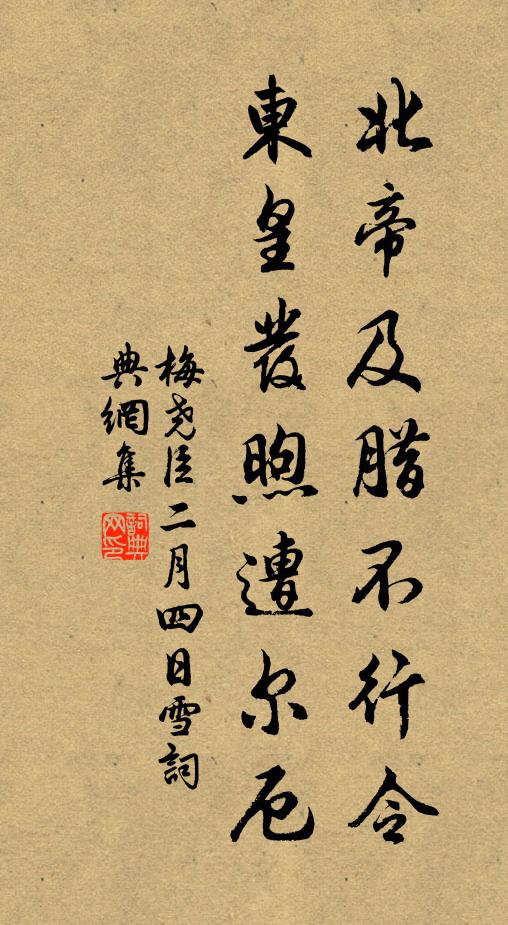 北帝及腊不行令
東皇發煦遭尔厄
梅尧臣二月四日雪詞
典網集
詞典
网印